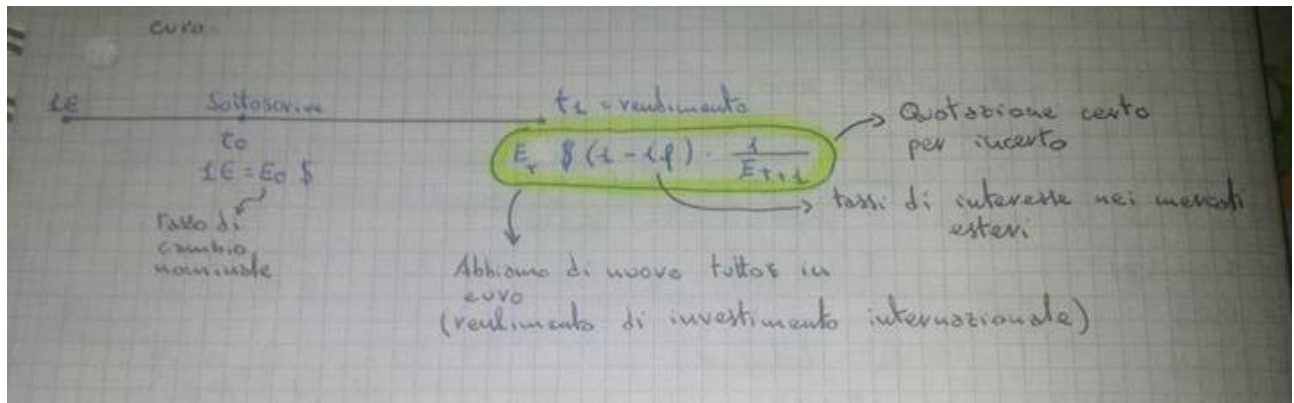 euro.
1€ Sottoscrive t1 = rendimento
t0
1€ = E0 $
Tasso di
cambio
nominale
E_t $ (1 - if) · 1/E_t+1
Quotazione certo
per incerto
tassi di interesse nei mercati
esteri
Abbiamo di nuovo tutto in
euro
(rendimento di investimento internazionale)